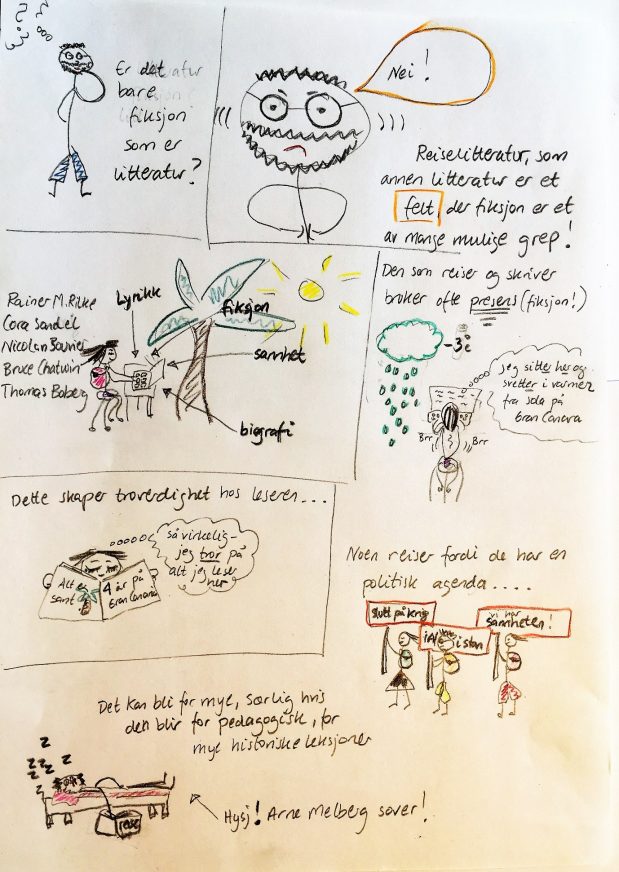 Er det
bare
fiksjon
som er
litteratur?
Nei!
Reiselitteratur, som
annen litteratur er et
felt, der fiksjon er et
av mange mulige grep!
Rainer M. Rilke
Cora Sandel
Nicolas Bouvier
Bruce Chatwin
Thomas Boberg
Lyrikk
fiksjon
sannhet
biografi
Den som reiser og skriver
bruker ofte presens (fiksjon!)
-3°C
jeg sitter her og
svetter i varmen
fra sola på
Gran Canaria
Brr
Brr
Dette skaper troverdighet hos leseren...
så virkelig-
jeg tror på
alt jeg leser
her
Alt er
sant
4 år på
Gran Canaria
Noen reiser fordi de har en
politisk agenda....
Slutt på krig
istan
vi har
sannheten!
Det kan bli for mye, særlig hvis
den blir for pedagogisk, for
mye historiske leksjoner
z z z z z z z
Hysj! Arne Melberg sover!